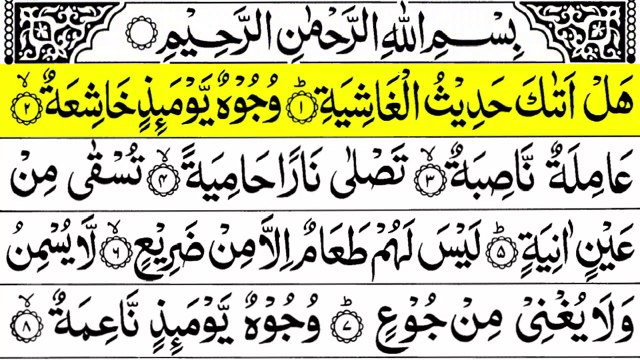 بِسْمِ اللهِ الرَّحْمٰنِ الرَّحِيْمِ
هَلْ اَتٰىكَ حَدِيْثُ الْغَاشِيَةِ ؕ‏﴿۱﴾ وُجُوْهٌ يَّوْمَئِذٍ خَاشِعَةٌ ۙ‏﴿۲﴾
عَامِلَةٌ نَّاصِبَةٌ ۙ‏﴿۳﴾ تَصْلٰى نَارًا حَامِيَةً ۙ‏﴿۴﴾ تُسْقٰى مِنْ
عَيْنٍ اٰنِيَةٍ ؕ‏﴿۵﴾ لَيْسَ لَهُمْ طَعَامٌ اِلَّا مِنْ ضَرِيْعٍ ۙ‏﴿۶﴾ لَّا يُسْمِنُ
وَلَا يُغْنِىْ مِنْ جُوْعٍ ؕ‏﴿۷﴾ وُجُوْهٌ يَّوْمَئِذٍ نَّاعِمَةٌ ۙ‏﴿۸﴾